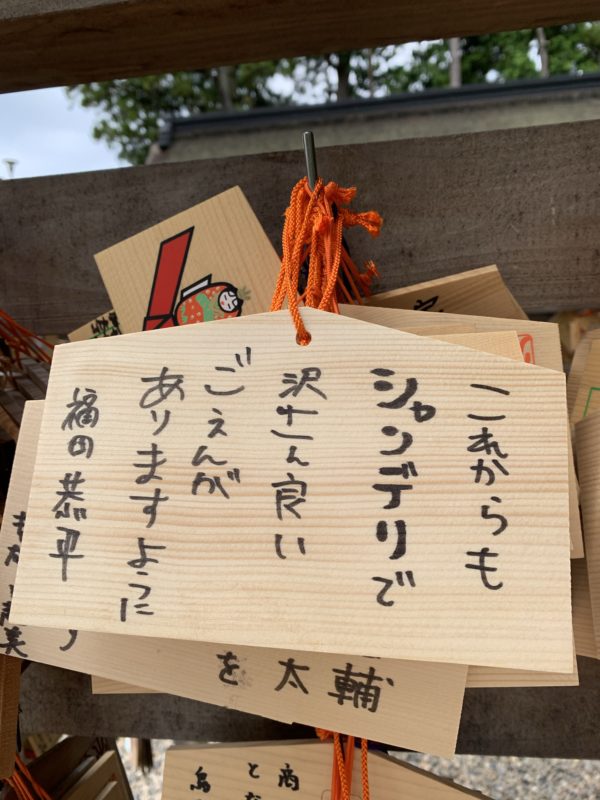 これからも
シャンデリで
沢さん良い
ごえんが
ありますように
福田恭平
輔
太
を
商
とな